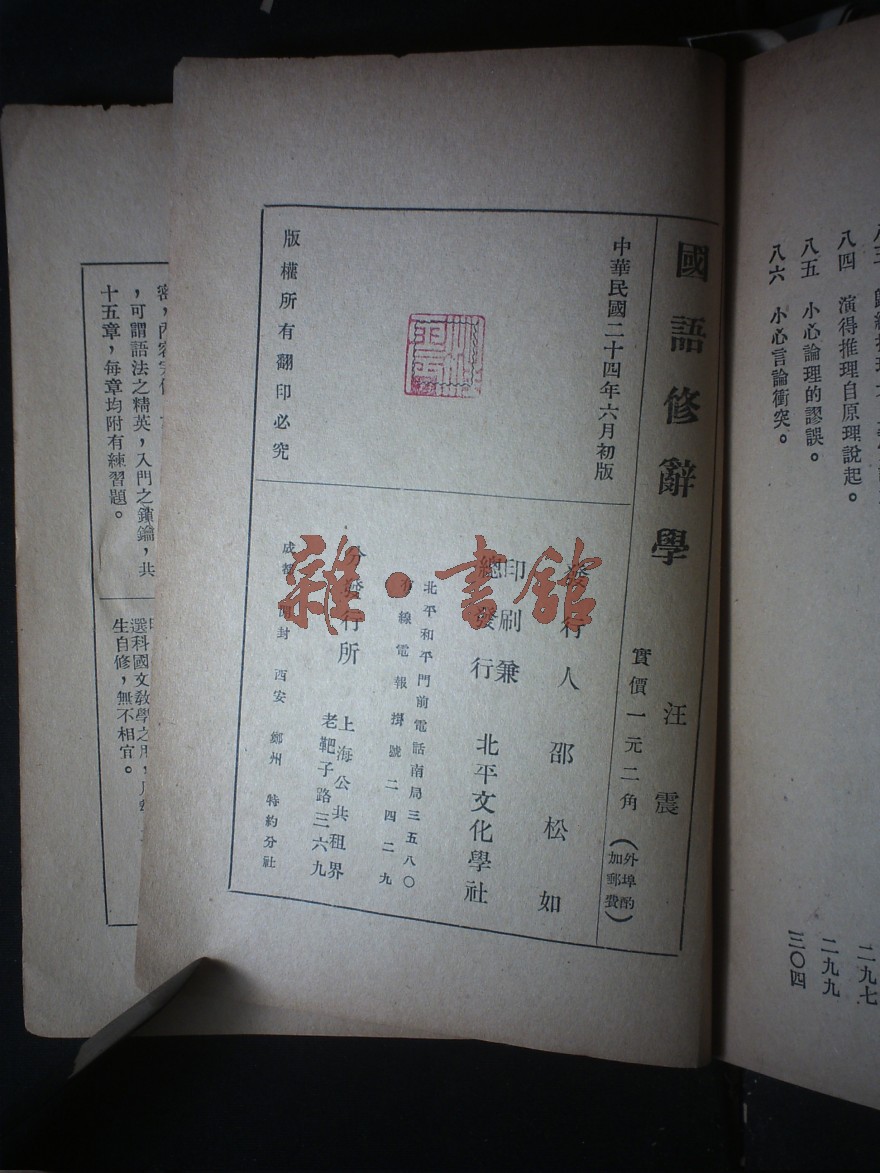 八四 演得推理自原理說起。 二九七
八五 小心論理的謬誤。 二九九
八六 小心言論衝突。 三〇四
國語修辭學 汪震
實價一元二角（外埠酌加郵費）
中華民國二十四年六月初版
版權所有翻印必究
發行人 邵松如
印刷兼
總發行 北平文化學社
北平和平門前電話南局三五八〇
有線電報掛號二四二九
分發行所 上海公共租界
老靶子路三六九
成都 開封 西安 鄭州 特約分社
雜·書館
，可謂語法之精英，入門之鎖鑰，共
十五章，每章均附有練習題。
選科國文教學之用，
生自修，無不相宜。